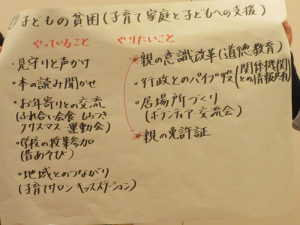 子どもの貧困(子育て家庭と子どもへの支援)
やっていること
・見守りと声かけ
・本の読み聞かせ
・お年寄りとの交流
(ふれ合い会食 もちつき
クリスマス 運動会)
・学校の授業参加
(昔あそび)
・地域とのつながり
(子育てサロン キッズステーション)
やりたいこと
・親の意識改革(道徳教育)
・行政とのパイプ役(関係機関との情報共有)
・居場所づくり
(ボランティア交流会)
・親の免許証